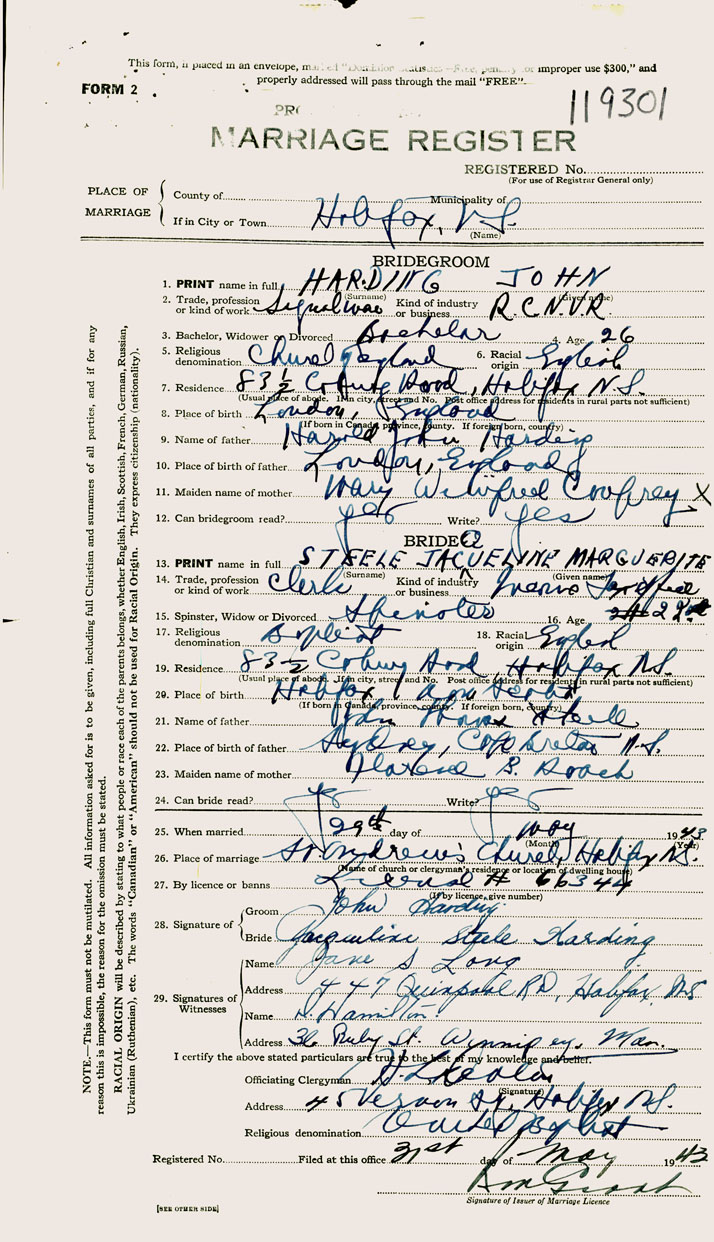 This form, if placed in an envelope, improper use $300," and
properly addressed will pass through the mail "FREE".
FORM 2
119301
MARRIAGE REGISTER
REGISTERED No.
(For use of Registrar General only)
PLACE OF MARRIAGE
County of Municipality of
If in City or Town Halifax, N.S.
(Name)
BRIDEGROOM
1. PRINT name in full HARDING JOHN
(Surname) (Given name)
2. Trade, profession or kind of work Signalman Kind of industry or business R.C.N.V.R.
3. Bachelor, Widower or Divorced Bachelor 4. Age 26
5. Religious denomination Church England 6. Racial origin English
7. Residence 83½ Coburg Road, Halifax N.S.
(Usual place of abode. If in city, street and No. Post office address for residents in rural parts not sufficient)
8. Place of birth London, England
(If born in Canada, province, county. If foreign born, country)
9. Name of father Harold John Harding
10. Place of birth of father London, England
11. Maiden name of mother Mary Winifred X
12. Can bridegroom read? yes Write? yes
BRIDE
13. PRINT name in full STEELE JACQUELINE MARGUERITE
(Surname) (Given name)
14. Trade, profession or kind of work Clerk Kind of industry or business
15. Spinster, Widow or Divorced Spinster 16. Age
17. Religious denomination Baptist 18. Racial origin English
19. Residence 83½ Coburg Road, Halifax N.S.
(Usual place of abode. If in city, street and No. Post office address for residents in rural parts not sufficient)
20. Place of birth Halifax Nova Scotia
(If born in Canada, province, county. If foreign born, country)
21. Name of father John Thomas Steele
22. Place of birth of father Sydney, Cape Breton N.S.
23. Maiden name of mother Roach
24. Can bride read? yes Write? yes
25. When married 29th day of May 1943
(Month) (Year)
26. Place of marriage St. Andrew's Church, Halifax N.S.
(Name of church or clergyman's residence or location of dwelling house)
27. By licence or banns License # 66344
(If by licence, give number)
28. Signature of
Groom John Harding
Bride Jacqueline Steele Harding
29. Signatures of Witnesses
Name Jane S Long
Address 447 Quinpool RD, Halifax, N.S
Name Hamilton
Address 36 Ruby St. Winnipeg, Man.
I certify the above stated particulars are true to the best of my knowledge and belief.
Officiating Clergyman
(Signature)
Address 45 Vernon St, Halifax N.S.
Religious denomination United Baptist
Registered No. Filed at this office 31st day of May 1943
Grant
Signature of Issuer of Marriage Licence
[SEE OTHER SIDE]
NOTE.—This form must not be mutilated. All information asked for is to be given, including full Christian and surnames of all parties, and if for any
reason this is impossible, the reason for the omission must be stated.
RACIAL ORIGIN will be described by stating to what people or race each of the parents belongs, whether English, Irish, Scottish, French, German, Russian,
Ukrainian (Ruthenian), etc. The words "Canadian" or "American" should not be used for Racial Origin. They express citizenship (nationality).